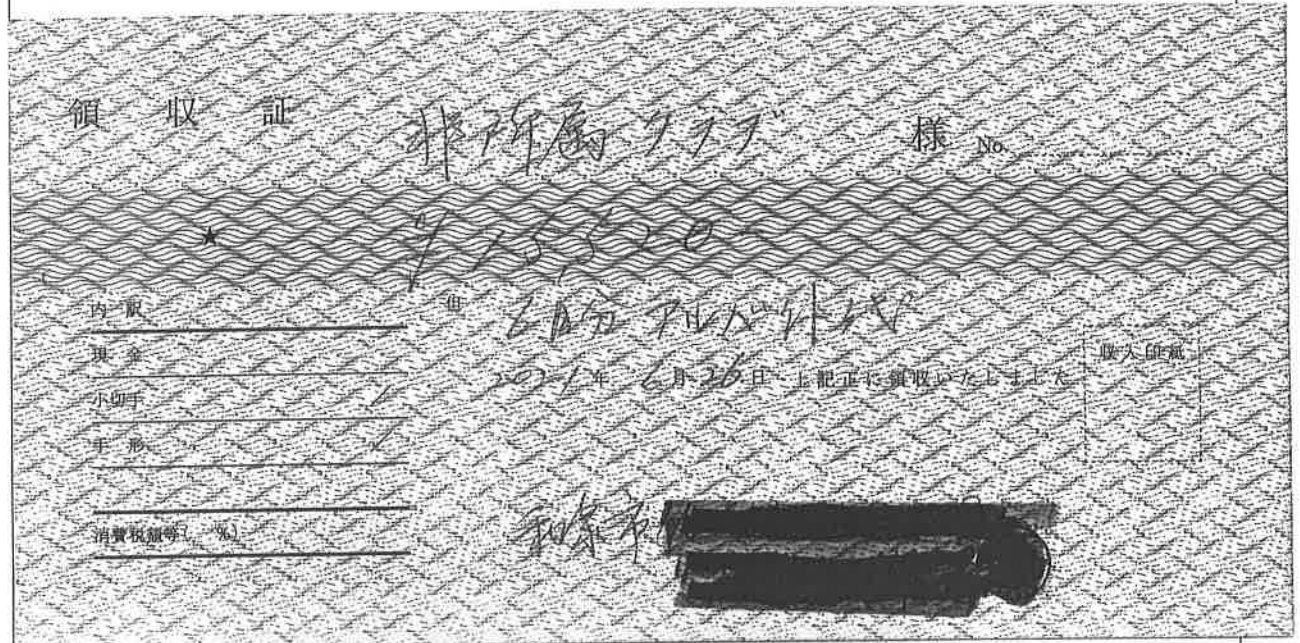 領収証 非所属クラブ 様 No.
★ ¥15,520-
但 6月分アルバイト代
2021年 6月26日 上記正に領収いたしました
内訳
現金
小切手
手形
消費税額等( %)
収入印紙
和泉市